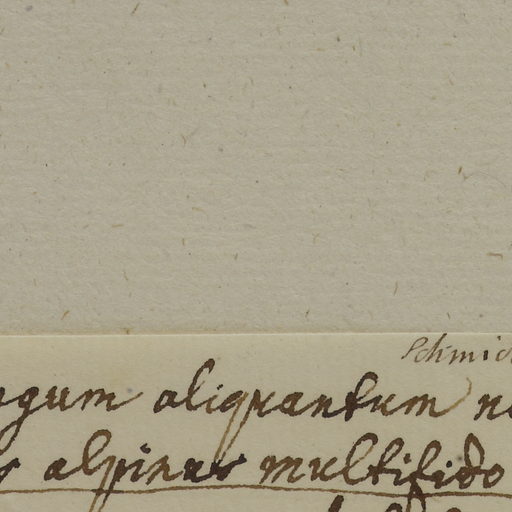 Schmid
gum aliquantum
alpinus multifido